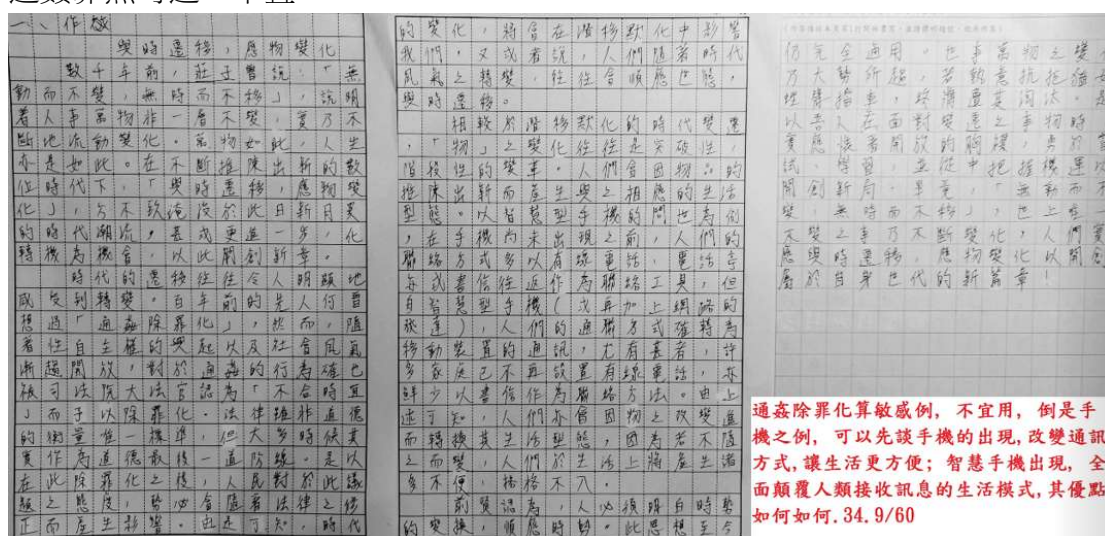 一、作文
與時遷移，應物變化
數千年前，莊子曾說：「無
動而不變，無時而不移」，說明
著人事萬物非一層不變，實乃不
斷地流動變化。萬物如此，人生
亦是如此。在不斷推陳出新的數
位時代下，「與時遷移，應物變
化」，方不致淹沒於此日新月異
的時代潮流，甚或更進一步，化
轉機為機會，以此開創新章。
時代的遷移往往令人明顯地
感受到轉變。百年前的先人何曾
想過「通姦除罪化」，然而，隨
著性自主權的興起以及社會風氣
漸趨開放，對於通姦的行為確已
被司法院大法官認為「不合時宜
」而予以除罪化。法律雖非道德
的衡量唯一標準，但大多時候其
實作為道德最後一道防線。是以
在此除罪化之後，人民對於此議
題之態度，勢必會隨著法律之修
正而產生影響。由是可知，時代
的變化，將會在潛移默化中影響
我們。又或者說，人們隨著時代
風氣之轉變，往往會順應世態，
與時遷移。
相較於潛移默化的時代變遷
，「物」之變化往往是突破性，
階段性的變革。人們會因物品的
推陳出新而產生與之相應的生活
型態。以智慧型手機的問世為例
，在手機尚未出現之前，人們的
聯絡方式多以有線電話，電話亭
亦或書信往返作為聯絡工具，但
自智慧型手機（或再加上網路的
發達），人們的通聯方式確轉為
移動裝置的通訊，尤有甚者，許
多家庭已不再設置有線電話，亦
鮮少以書信作為聯絡方法。由上
述可知，人們亦會因物之改變進
而轉換其生活型態，因為若不隨
之而變，人們於生活上將產生諸
多不便，格格不入。
前賢認為，人必須明白時勢
的變換，順應時勢。此思想至今
仍完全適用。世事萬物之變化
乃大勢所趨，若執意抗拒猶如
螳臂擋車，終將遭其淘汰。是
以吾人在面對變遷之事物時
實應懷著開放的胸襟，勇於嘗
試、學習，並從中把握機運以
開創新局。畢竟「無動而不
變，無時而不移」，世上唯一
不變之事乃不斷變化，人們實
應與時遷移，應物變化以開創
屬於自身世代的新篇章！
通姦除罪化算敏感例，不宜用，倒是手
機之例，可以先談手機的出現,改變通訊
方式,讓生活更方便；智慧手機出現，全
面顛覆人類接收訊息的生活模式,其優點
如何如何.34.9/60